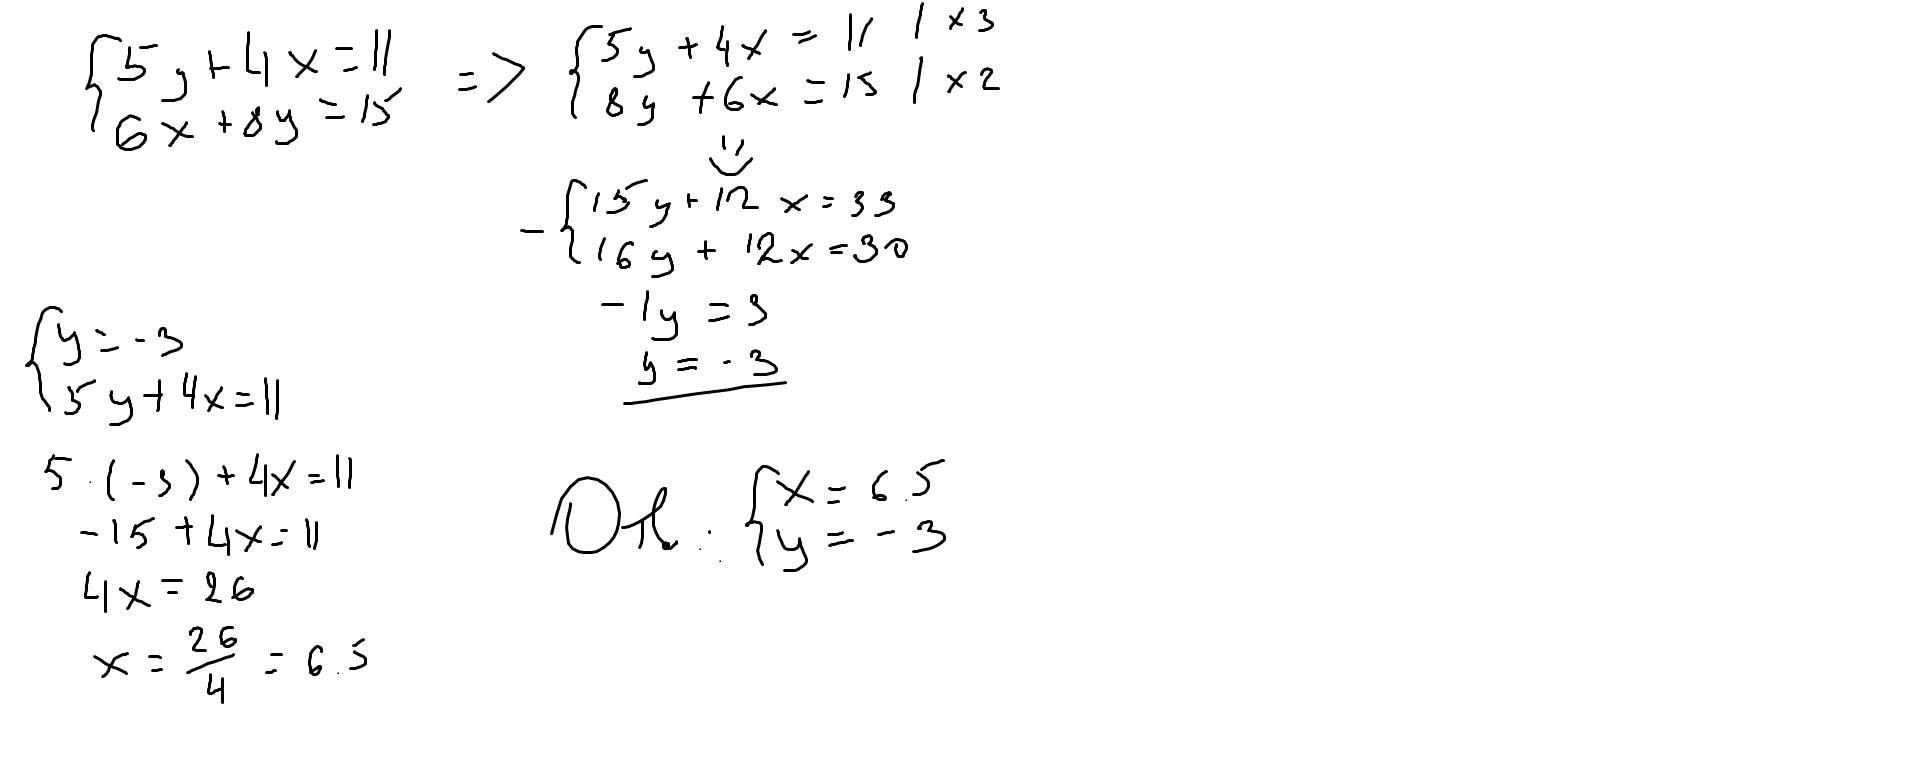 {5y+4x=11
6x+8y=15
=> {5y+4x=11 | x3
8y+6x=15 | x2
-{15y+12x=33
16y+12x=30
-1y=3
y=-3
{y=-3
5y+4x=11
5·(-3)+4x=11
-15+4x=11
4x=26
x=26/4=6.5
{x=6.5
y=-3